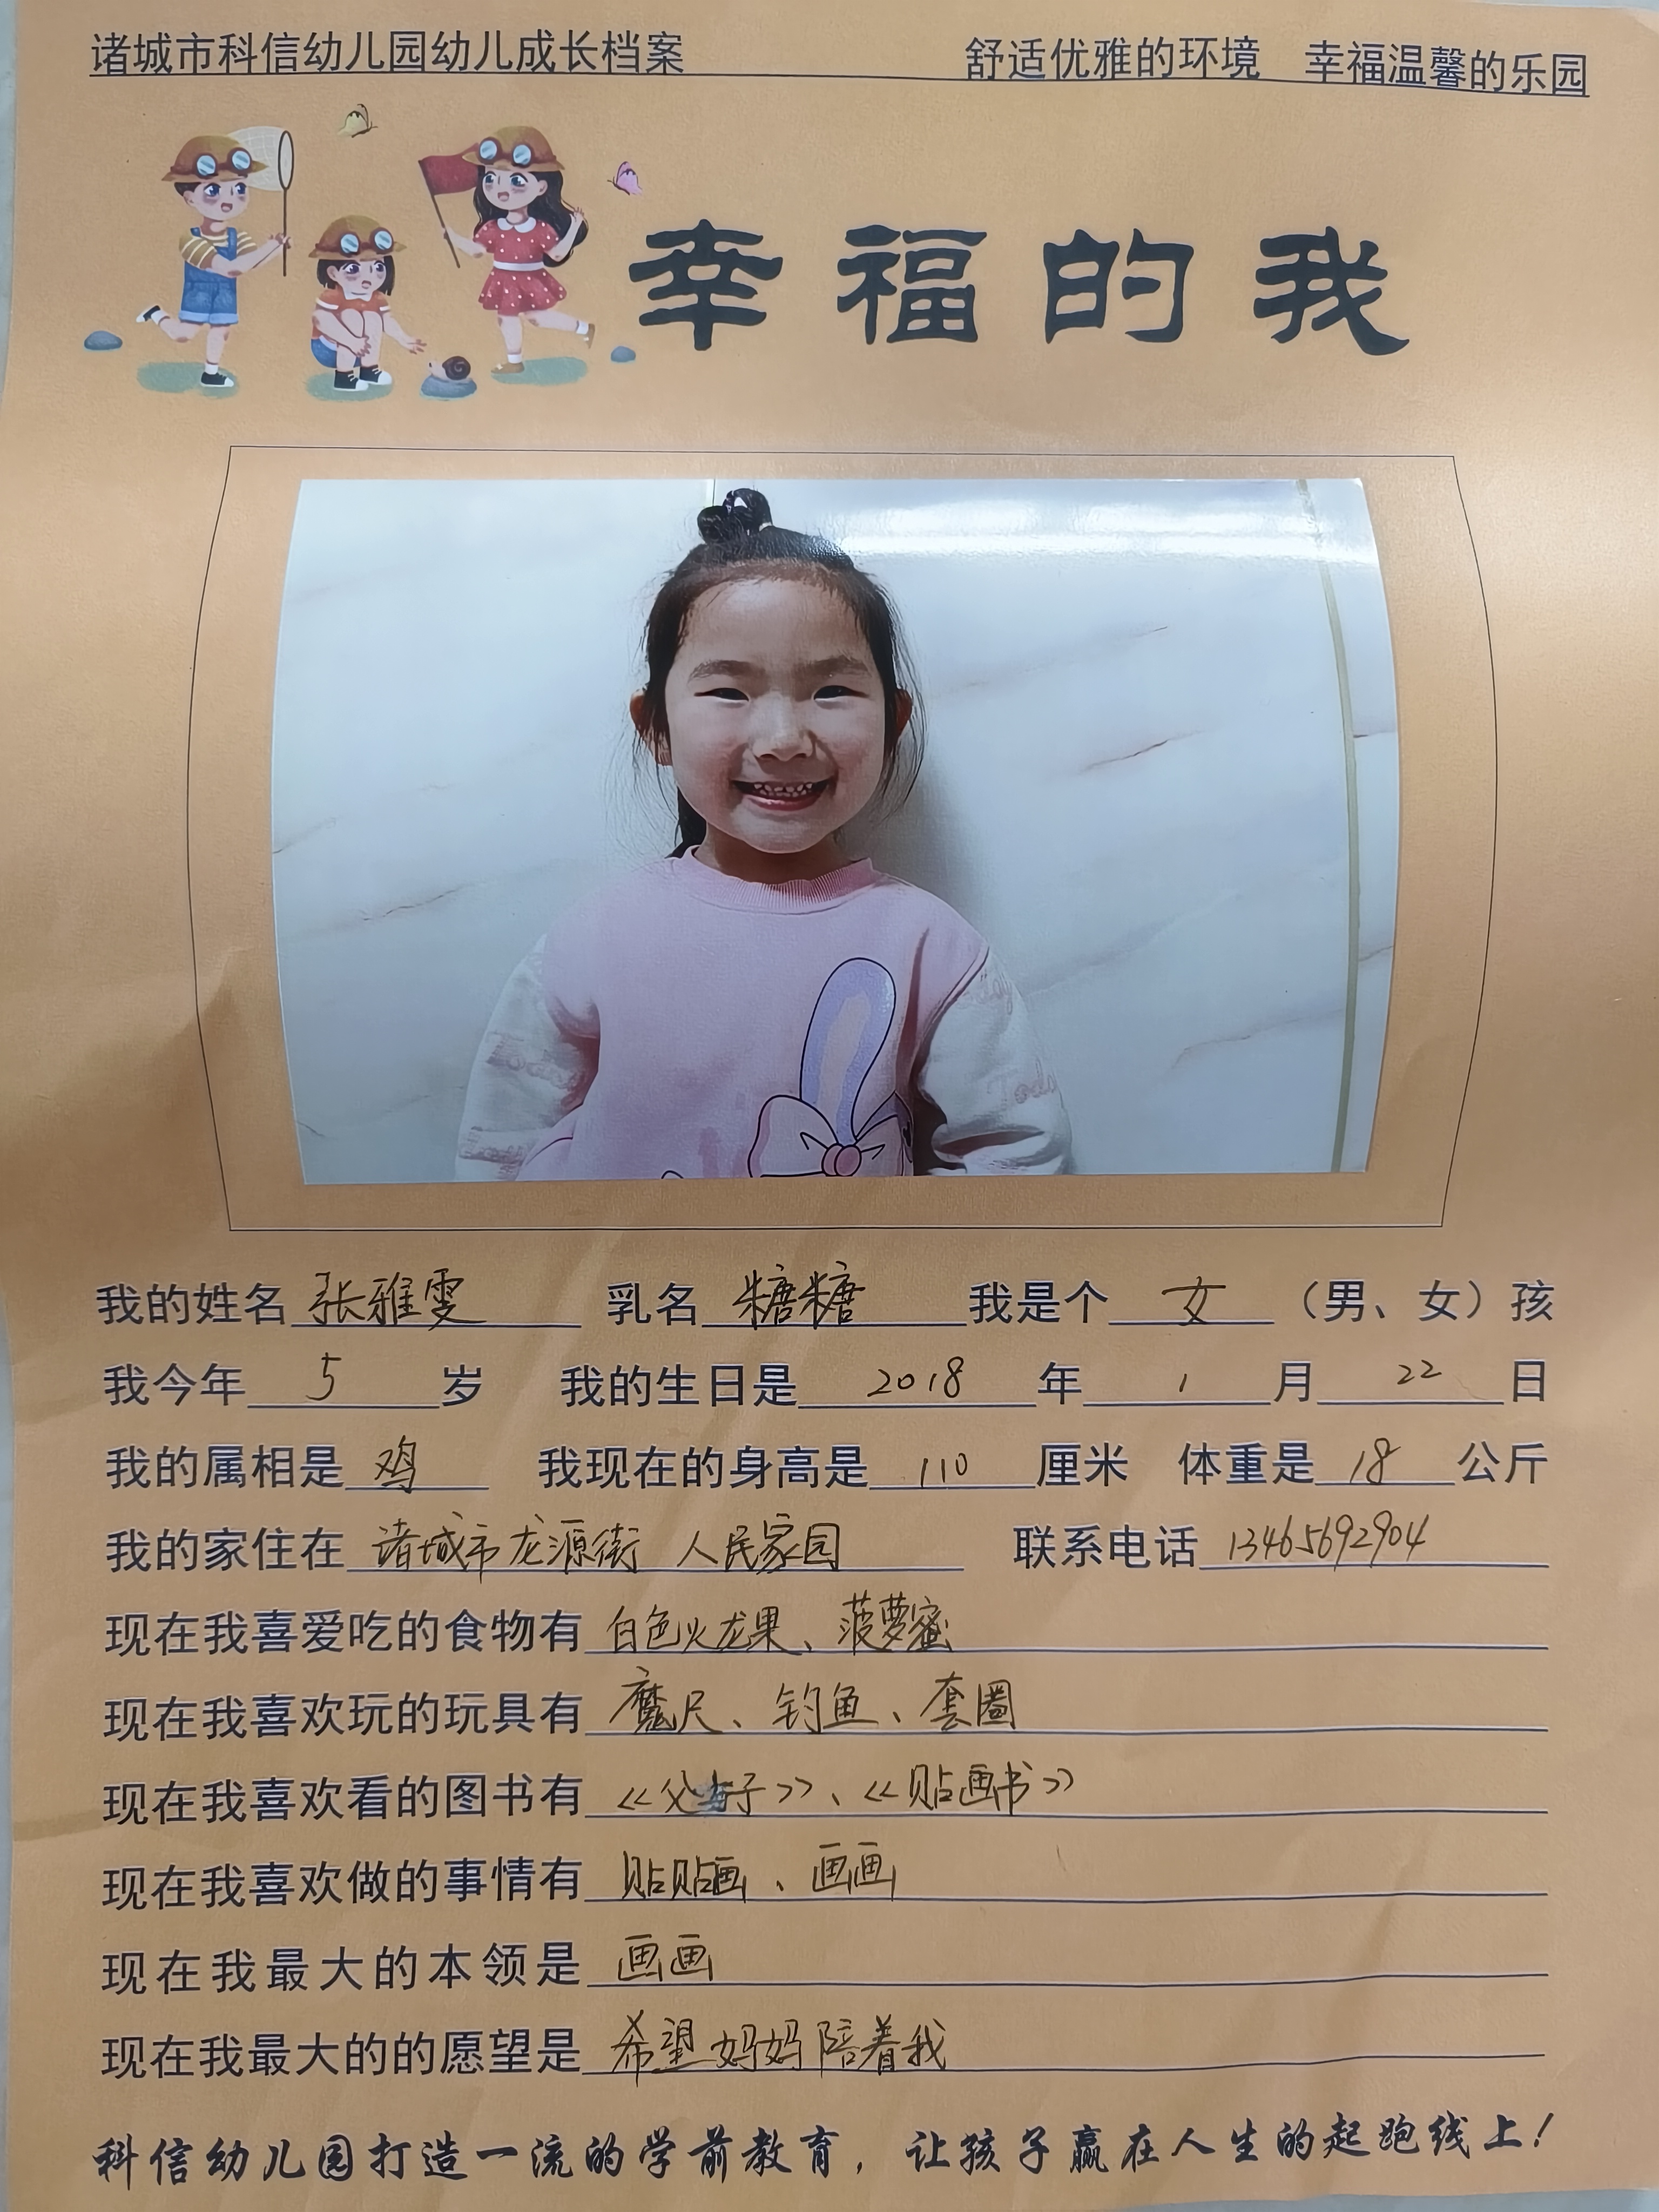 诸城市科信幼儿园幼儿成长档案 舒适优雅的环境 幸福温馨的乐园
幸福的我
我的姓名 张雅雯 乳名 糖糖 我是个 女 （男、女）孩
我今年 5 岁 我的生日是 2018 年 1 月 22 日
我的属相是 鸡 我现在的身高是 110 厘米 体重是 18 公斤
我的家住在 诸城市龙源街 人民家园 联系电话 13465692904
现在我喜爱吃的食物有 白色火龙果、菠萝蜜
现在我喜欢玩的玩具有 魔尺、钓鱼、套圈
现在我喜欢看的图书有 《父与子》、《贴画书》
现在我喜欢做的事情有 贴贴画、画画
现在我最大的本领是 画画
现在我最大的的愿望是 希望妈妈陪着我
科信幼儿园打造一流的学前教育，让孩子赢在人生的起跑线上！